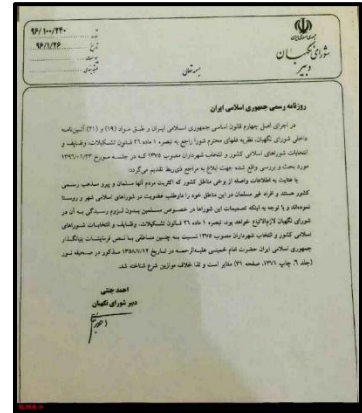 ۹۶/۱۰۰/۲۴۰
۹۶/۱/۲۶
شورای نگهبان
دبیر
بسمه تعالی
روزنامه رسمی جمهوری اسلامی ایران
در اجرای اصل چهارم قانون اساسی جمهوری اسلامی ایران و طبق مواد (۱۹) و (۲۱) آئین‌نامه
داخلی شورای نگهبان، نظریه فقهای محترم شورا راجع به تبصره ۱ ماده ۲۶ قانون تشکیلات، وظایف و
انتخابات شوراهای اسلامی کشور و انتخاب شهرداران مصوب ۱۳۷۵ که در جلسه مورخ ۱۳۹۶/۰۱/۲۳
مورد بحث و بررسی واقع شده جهت ابلاغ به مراجع ذی‌ربط تقدیم می‌گردد:
با عنایت به اطلاعات واصله از برخی مناطق کشور که اکثریت مردم آنها مسلمان و پیرو مذهب رسمی
کشور هستند و افراد غیر مسلمان در این مناطق خود را داوطلب عضویت در شوراهای اسلامی شهر و روستا
نموده‌اند و با توجه به اینکه تصمیمات این شوراها در خصوص مسلمین بدون لزوم رسیدگی به آن در
شورای نگهبان لازم‌الاتباع خواهد بود، تبصره ۱ ماده ۲۶ قانون تشکیلات، وظایف و انتخابات شوراهای
اسلامی کشور و انتخاب شهرداران مصوب ۱۳۷۵ نسبت به چنین مناطقی با نص فرمایشات بنیانگذار
جمهوری اسلامی ایران حضرت امام خمینی علیه‌الرحمه در تاریخ ۱۳۵۸/۷/۱۲ مذکور در صحیفه نور
(جلد ۶، چاپ ۱۳۷۱، صفحه ۳۱) مغایر است و لذا خلاف موازین شرع شناخته شد.
احمد جنتی
دبیر شورای نگهبان